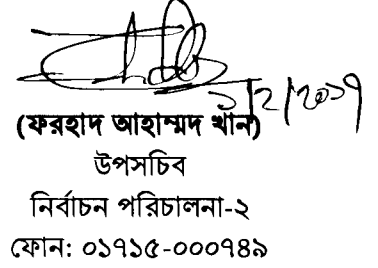 ১/২/২০১৭
(ফরহাদ আহাম্মদ খান)
উপসচিব
নির্বাচন পরিচালনা-২
ফোন: ০১৭১৫-০০০৭৪৯